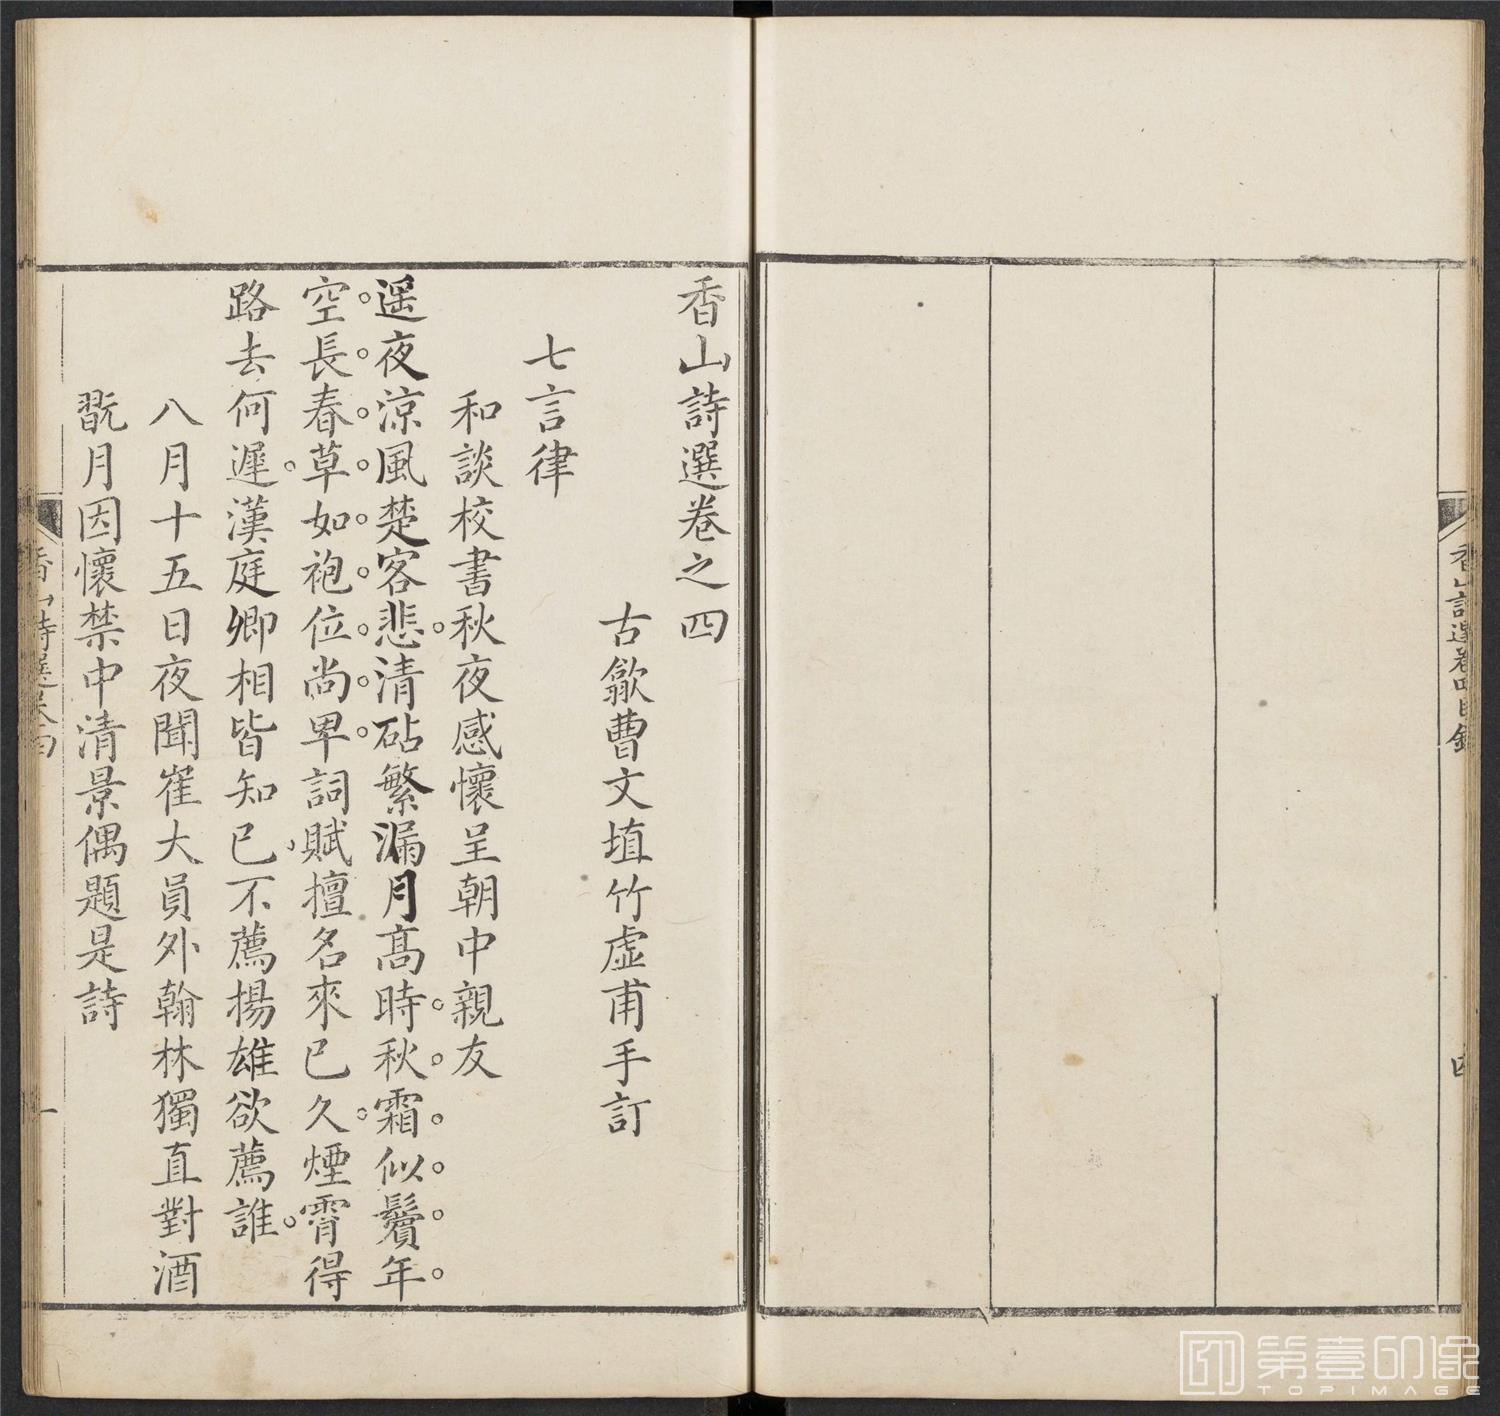 香山詩選卷四目錄
四
香山詩選卷之四
古歙曹文埴竹虛甫手訂
七言律
和談校書秋夜感懷呈朝中親友
遥夜涼風楚客悲清砧繁漏月高時秋霜似鬢年
空長春草如袍位尚卑詞賦擅名來已久煙霄得
路去何遲漢庭卿相皆知已不薦揚雄欲薦誰
八月十五日夜聞崔大員外翰林獨直對酒
翫月因懷禁中清景偶題是詩
香山詩選卷四
一
第壹印像
TOPIMAGE